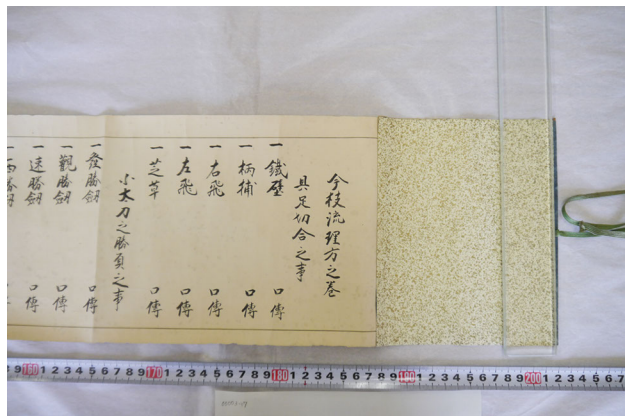 今枝流理方之巻
具足切合之事
一 鐵壁 口傳
一 柄捕 口傳
一 右飛 口傳
一 左飛 口傳
一 芝草 口傳
小太刀之勝負之事
一 發勝劔 口傳
一 觀勝劔 口傳
一 速勝劔 口傳
9 160 1 2 3 4 5 6 7 8 9 170 1 2 3 4 5 6 7 8 9 180 1 2 3 4 5 6 7 8 9 190 1 2 3 4 5 6 7 8 9 200 1 2 3 4 5 6 7